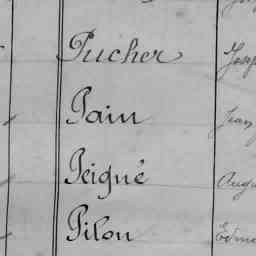 Pucher Josep
Pain Jean
Peigné Augu
Pilon Edmo